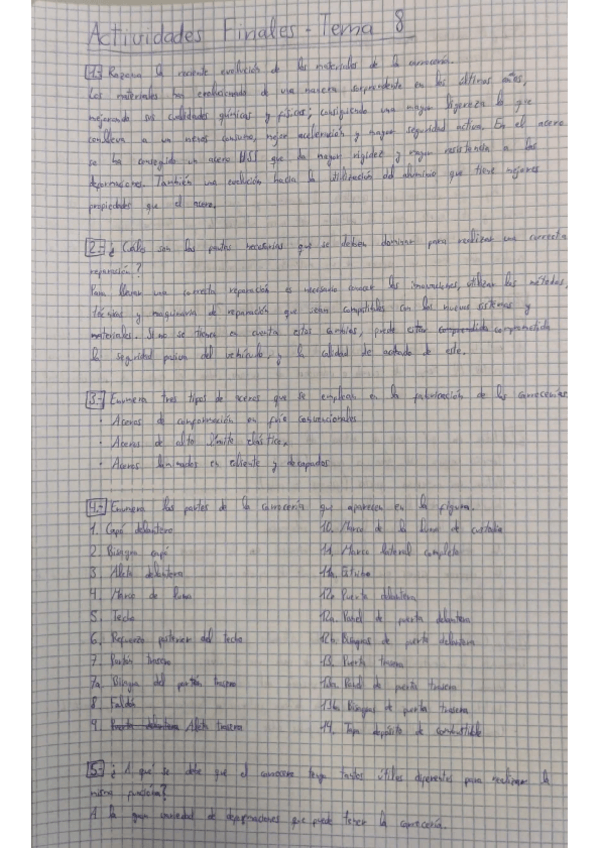 Actividades Finales - Tema 8
1.- Razona la reciente evolución de los materiales de la carrocería.
Los materiales han evolucionado de una manera sorprendente en los últimos años,
mejorando sus cualidades químicas y físicas; consiguiendo una mayor ligereza lo que
conlleva a un menos consumo, mejor aceleración y mayor seguridad activa. En el acero
se ha conseguido un acero que da mayor rigidez y mayor resistencia a las
deformaciones. También una evolución hacia la utilización del aluminio que tiene mejores
propiedades que el acero.
2.- ¿Cuáles son las pautas necesarias que se deben dominar para realizar una correcta
reparación?
Para llevar una correcta reparación es necesario conocer las innovaciones, utilizar los métodos,
técnicas y maquinaria de reparación que sean compatibles con los nuevos sistemas y
materiales. Si no se tienen en cuenta estos cambios, puede estar comprendida comprometida
la seguridad pasiva del vehículo y la calidad de acabado de este.
3.- Enumera tres tipos de aceros que se emplean en la fabricación de las carrocerías
· Aceros de conformación en frío convencionales
· Aceros de alto límite elástico.
· Aceros laminados en caliente y decapados
4.- Enumera las partes de la carrocería que aparecen en la figura.
1. Capó delantero
2. Bisagra capó
3. Aleta delantera
4. Marco de luna
5. Techo
6. Refuerzo posterior del techo
7. Portón trasero
7a. Bisagra del portón trasero
8. Faldón
9. Puerta delantera Aleta trasera
10. Marco de la luna de custodia
11. Marco lateral completo
11a. Estribo
12. Puerta delantera
12a. Panel de puerta delantera
12b. Bisagras de puerta delantera
13. Puerta trasera
13a. Panel de puerta trasera
13b. Bisagras de puerta trasera
14. Tapa depósito de combustible
5.- ¿A qué se debe que el carrocero tenga tantos útiles diferentes para realizar la
misma función?
A la gran variedad de deformaciones que puede tener la carrocería.